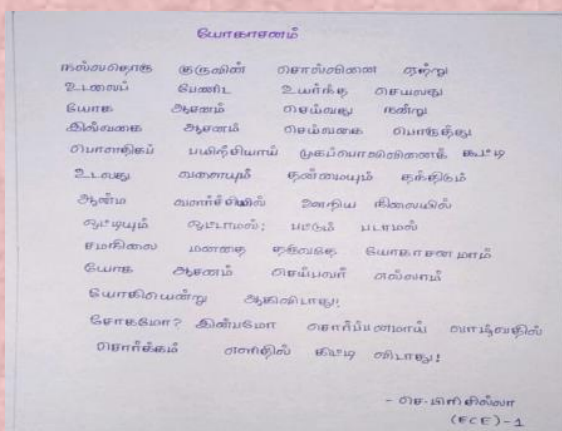 யோகாசனம்
நல்லதொரு குருவின் சொல்லினை ஏற்று
உடலைப் பேணிட உயர்ந்த செயலது
யோக ஆசனம் செய்வது நன்று
இவ்வகை ஆசனம் செய்வகை பொருத்து
பௌதிகப் பயிற்சியாய் முகப்பொலிவினைக் கூட்டி
உடலது வளையும் தன்மையும் தந்திடும்
ஆன்ம வளர்ச்சியில் ஊறிய நிலையில்
ஒட்டியும் ஒட்டாமல்; பட்டும் படாமல்
சமநிலை மனதை தருவதே யோகாசனமாம்
யோக ஆசனம் செய்பவர் எல்லாம்
யோகியென்று ஆகிவிடாது!
சோகமோ? இன்பமோ சொர்ப்பனமாய் வாழ்வதில்
சொர்க்கம் எளிதில் கிட்டி விடாது!
- செ.பிரிசில்லா
(ECE)-1